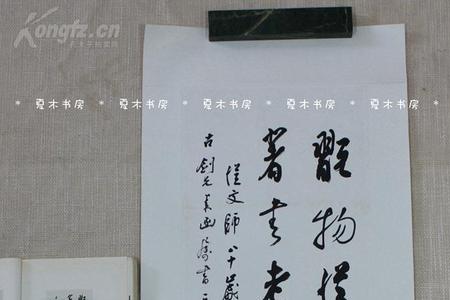 Kongfz.cn
孔夫子拍卖网
* 夏木书房 * 夏木书房 * 夏木书房 * 夏木书房 * 夏木书房 *
翫物從
著書老
從文師八十歲
古劍兄
書